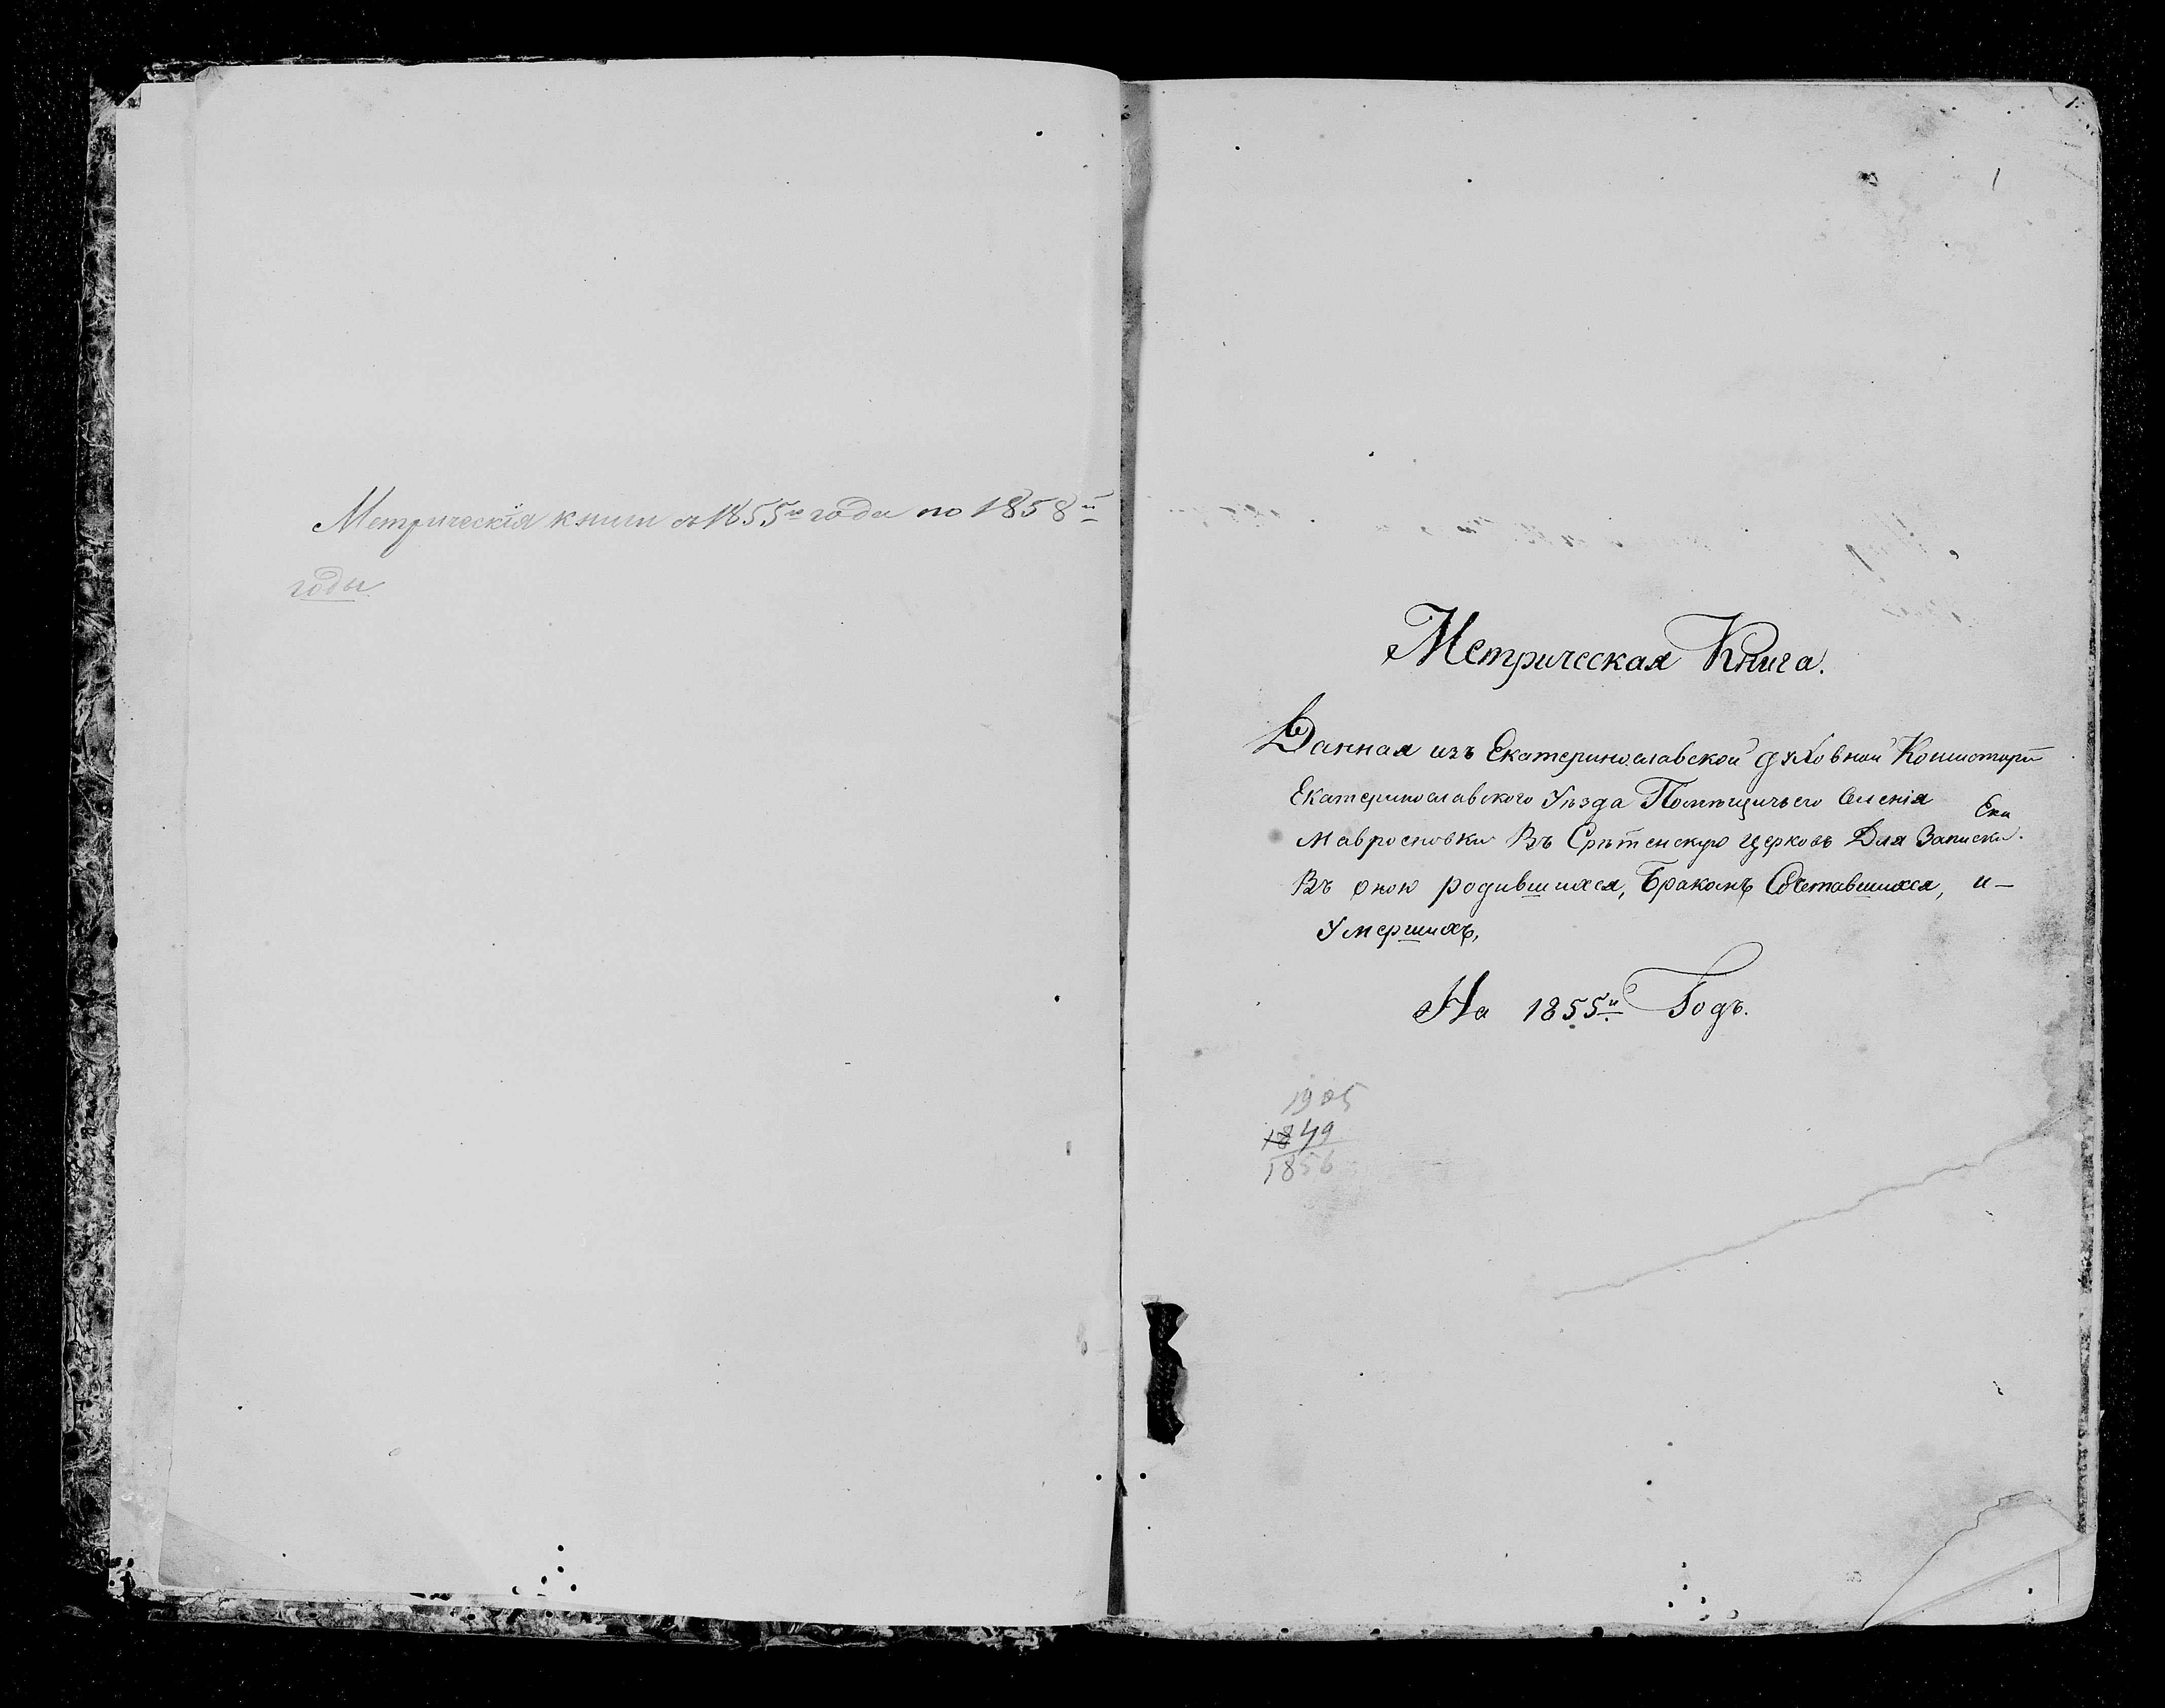 Метрическія книги съ 1855го года по 1858й
годы
1
1
Метрическая Книга.
Данная изъ Екатеринославской духовной Консисторіи
Екатеринославского Уѣзда Помѣщичьего Селенія Ека
Мавроеновки Въ Срѣтенскую церковь Для Записки.
Въ оною родившихся, Бракомъ Сочетавшихся, и —
Умершихъ,
На 1855й Годъ.
1905
1849
1856